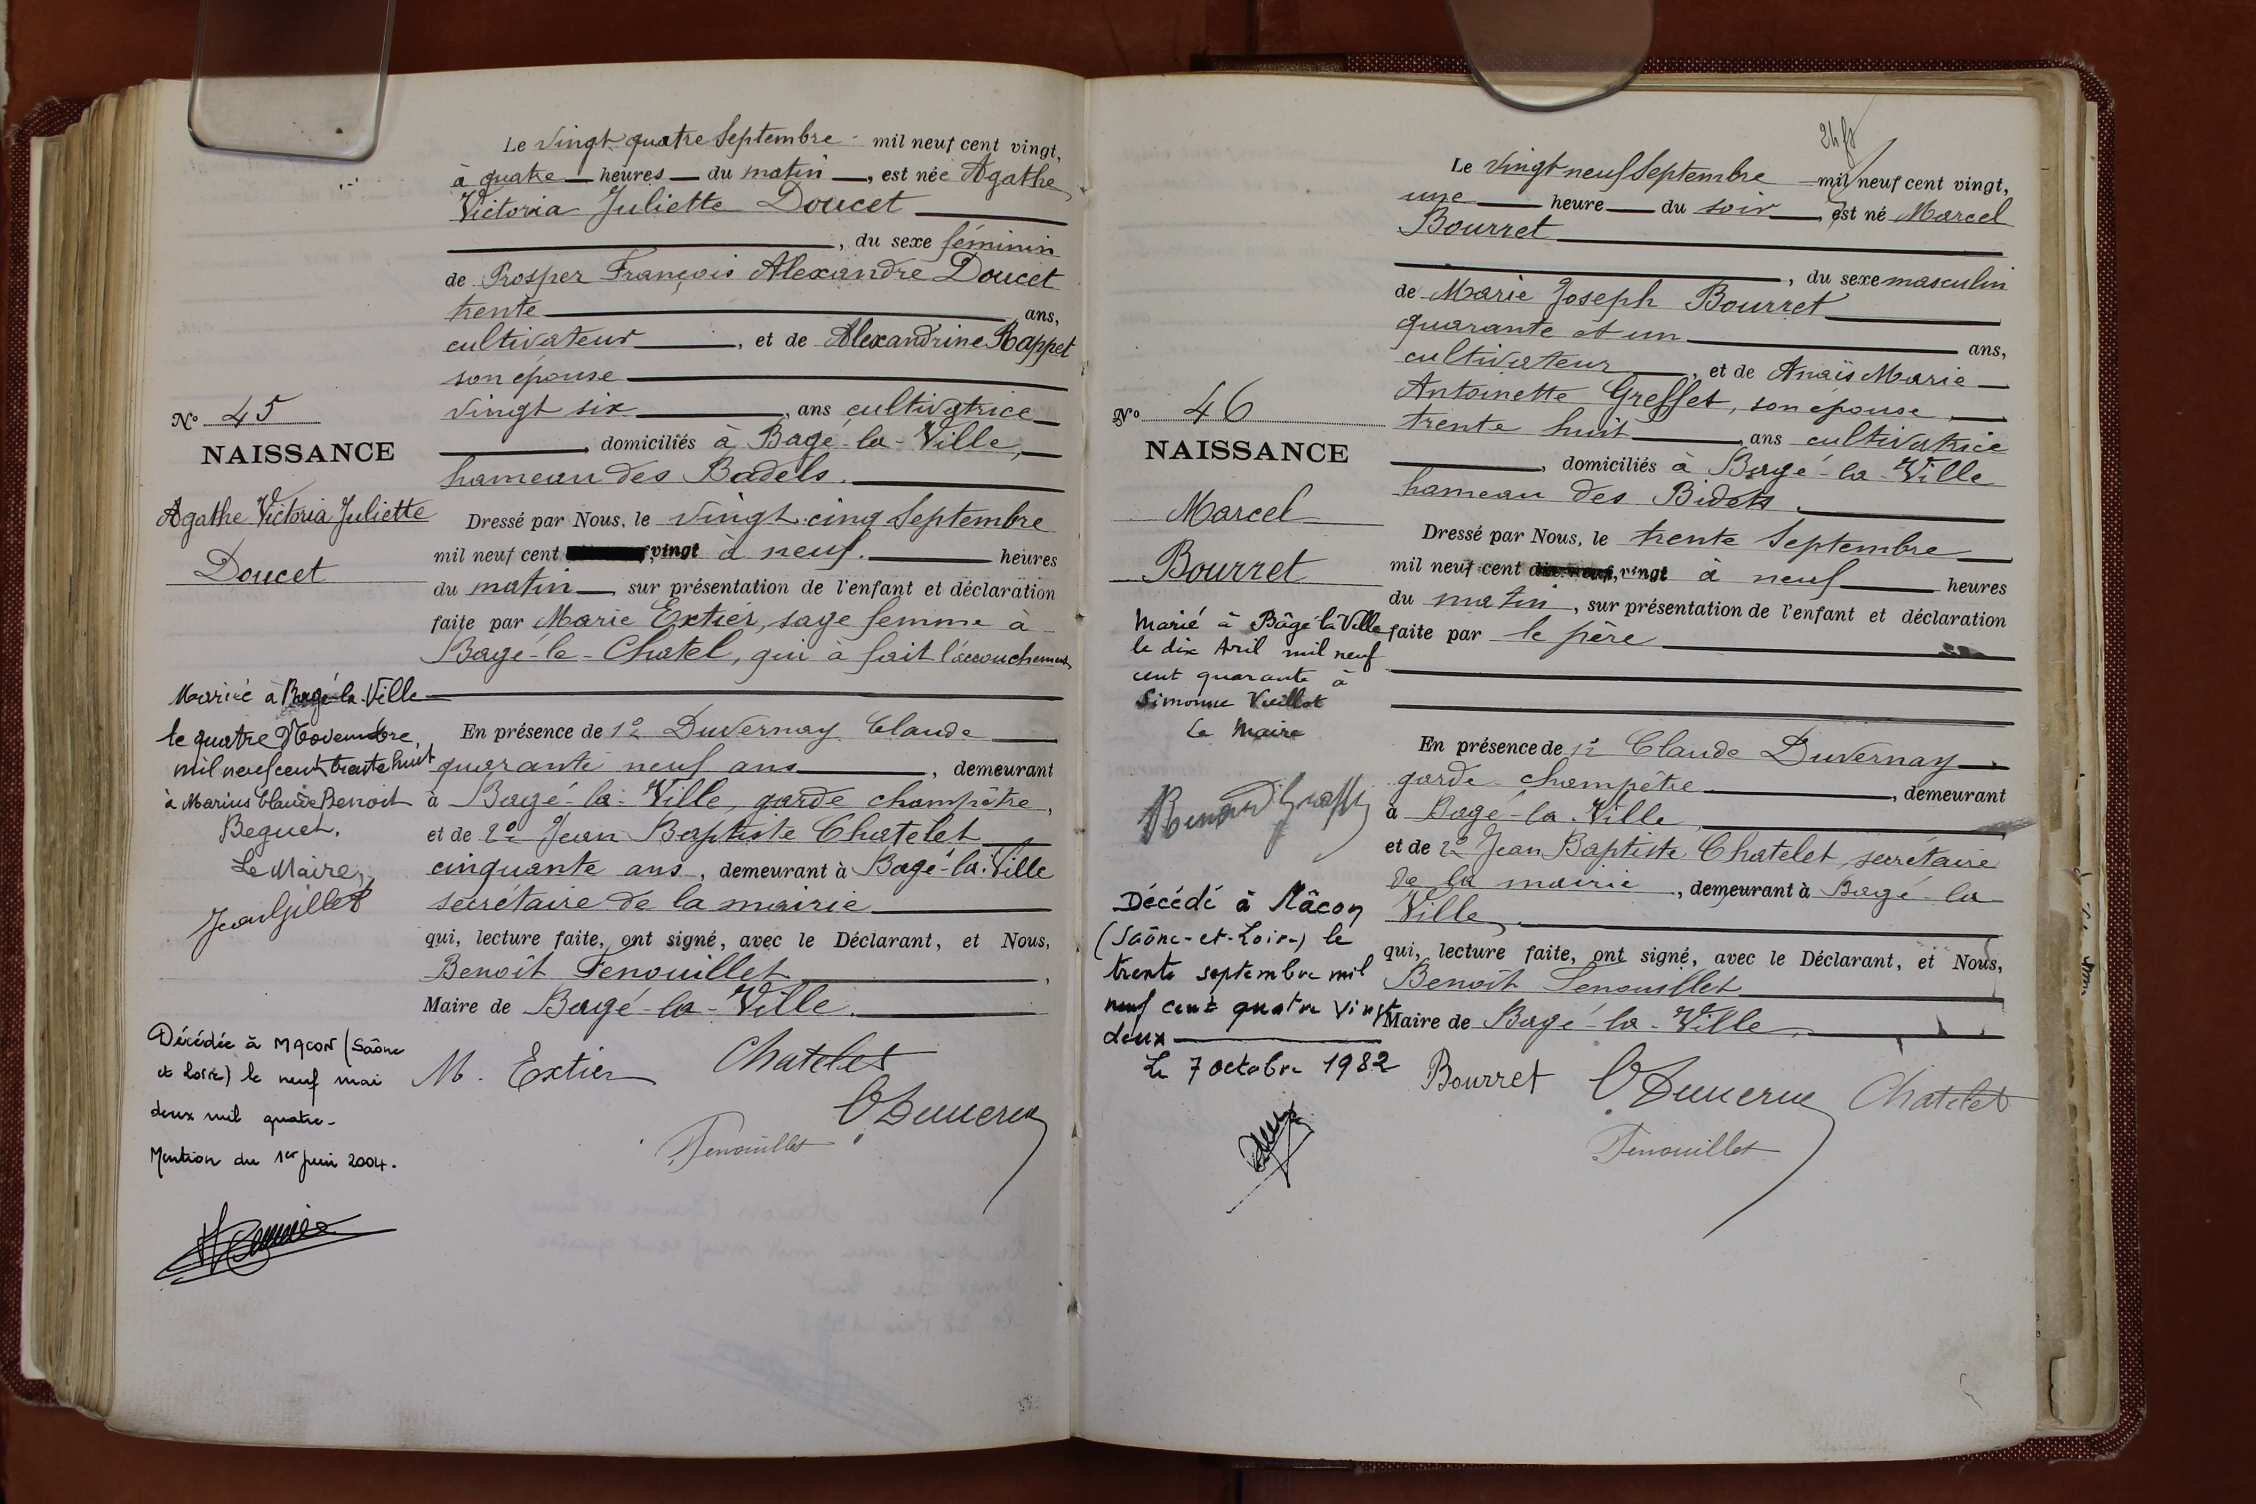 Le vingt quatre Septembre mil neuf cent vingt,
à quatre heures du matin, est née Agathe
Victoria Juliette Doucet
, du sexe féminin
de Prosper François Alexandre Doucet
trente ans,
cultivateur, et de Alexandrine Rappet
son épouse
vingt six, ans cultivatrice
, domiciliés à Bagé-la-Ville,
hameau des Badels.
Dressé par Nous, le vingt cinq Septembre
mil neuf cent vingt à neuf heures
du matin sur présentation de l'enfant et déclaration
faite par Marie Extier, sage femme à
Bagé-le-Chatel, qui à fait l'accouchement
En présence de 1º Duvernay Claude
quarante neuf ans, demeurant
à Bagé-la-Ville, garde champêtre,
et de 2º Jean Baptiste Chatelet
cinquante ans, demeurant à Bagé-la-Ville
secrétaire de la mairie
qui, lecture faite, ont signé, avec le Déclarant, et Nous,
Benoît Fenouillet,
Maire de Bagé-la-Ville.
M. Extier Chatelet
Fenouillet
Nº 45
NAISSANCE
Agathe Victoria Juliette
Doucet
Mariée à Bagé-la-Ville
le quatre Novembre,
mil neuf cent trente huit
à Marius Claude Benoit
Beguet.
Le Maire,
Jean Gillet
Décédée à MACON (Saône
et Loire) le neuf mai
deux mil quatre-
Mention du 1er juin 2004.
Le vingt neuf Septembre mil neuf cent vingt,
une heure du soir, est né Marcel
Bourret
, du sexe masculin
de Marie Joseph Bourret
quarante et un ans,
cultivateur, et de Anaïs Marie
Antoinette Greffet, son épouse
trente huit, ans cultivatrice
, domiciliés à Bagé-la-Ville
hameau des Bidets.
Dressé par Nous, le trente Septembre
mil neuf cent dix-neuf, vingt à neuf heures
du matin, sur présentation de l'enfant et déclaration
faite par le père
En présence de 1º Claude Duvernay
garde champêtre, demeurant
à Bagé-la-Ville,
et de 2º Jean Baptiste Chatelet secrétaire
de la mairie, demeurant à Bagé-la
Ville,
qui, lecture faite, ont signé, avec le Déclarant, et Nous,
Benoît Fenouillet
Maire de Bagé-la-Ville,
Bourret Chatelet
Fenouillet
Nº 46
NAISSANCE
Marcel
Bourret
Marié à Bâgé-la-Ville
le dix Avril mil neuf
cent quarante à
Simonne Vieillot
Le Maire
Décédé à Mâcon
(Saône-et-Loire) le
trente septembre mil
neuf cent quatre vingt
deux
Le 7 octobre 1982